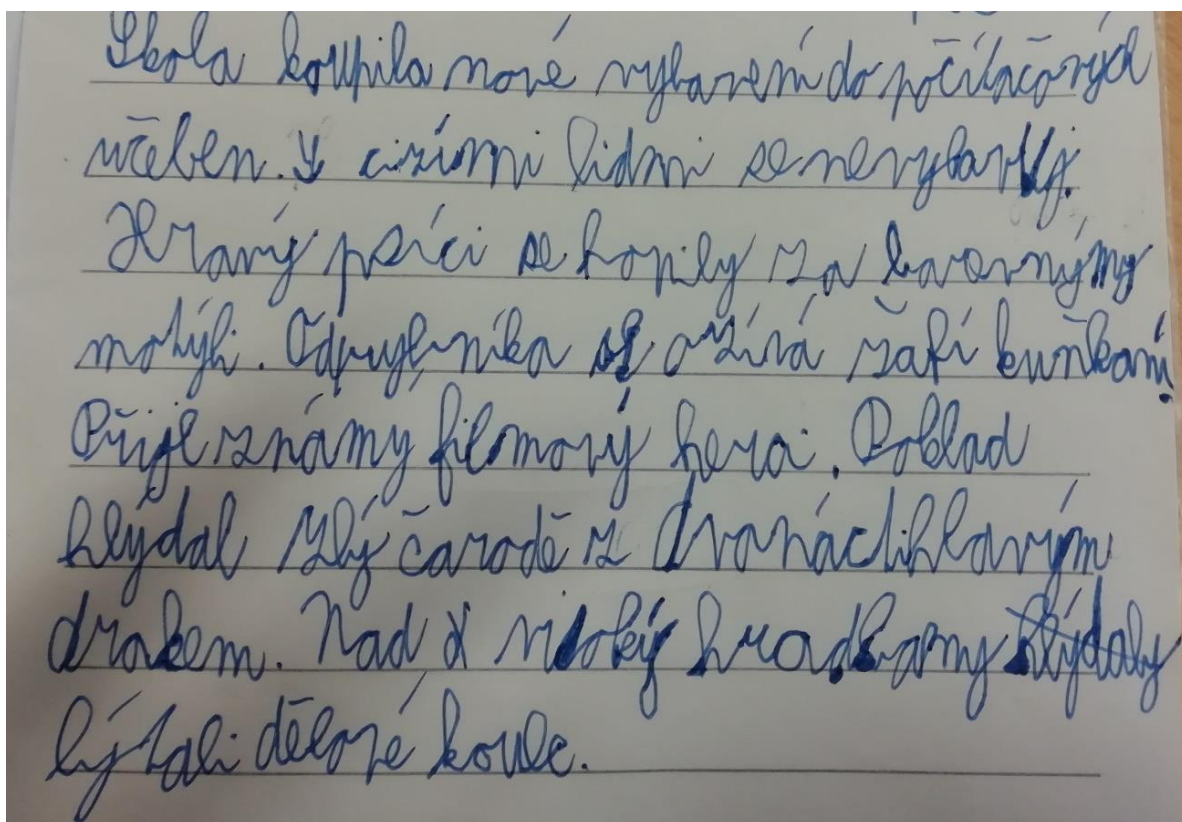 Skola koupila nové vybavení do počítačových
učeben. S cizími lidmi se nevybavuj.
Hravý psíci se honily za barevnýmy
motýli. Odpuyl níka se ožívá září kuňkaní.
Přijel známy filmový herci. Poklad
hlýdal zlý čaroděz dvanáctihlavým
drakem. Nad visoký hradbamy
lýtali dělové koule.